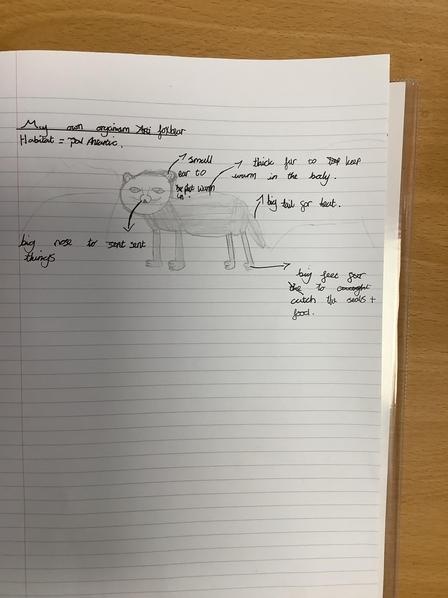 My own organism Arti foxbear
Habitat = Antartic.
small
ear to
warm
in.
thick fur to keep
warm in the body.
big tail for heat.
big nose to sent
things
big feet for
to
catch the seals +
food.